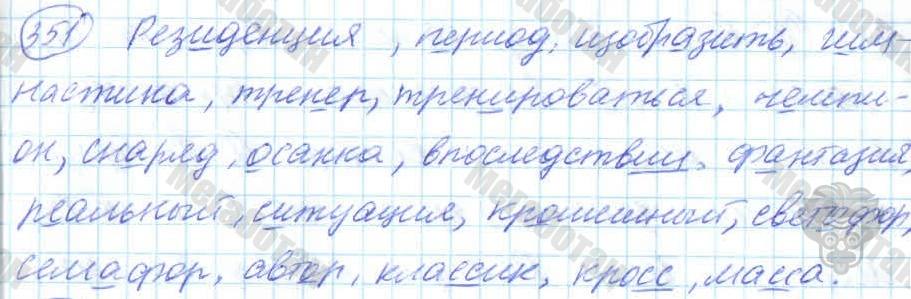 351 Резиденция, период, изобразить, гим-
настика, тренер, тренироваться, чемпи-
он, снаряд, осанка, впоследствии, фантазия,
реальный, ситуация, крошечный, светофор,
семафор, автор, классик, кросс, масса.
Мегаботан